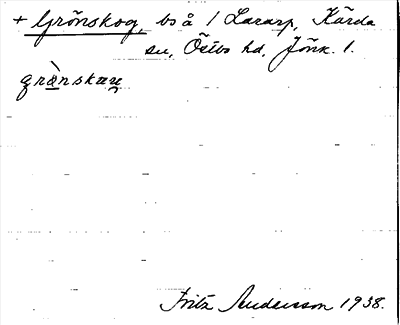 + Grönskog, bs å 1 Lararp, Kärda
sn, Östbo hd, Jönk. l.
grànskæu̯
Fritz Andersson 1938.